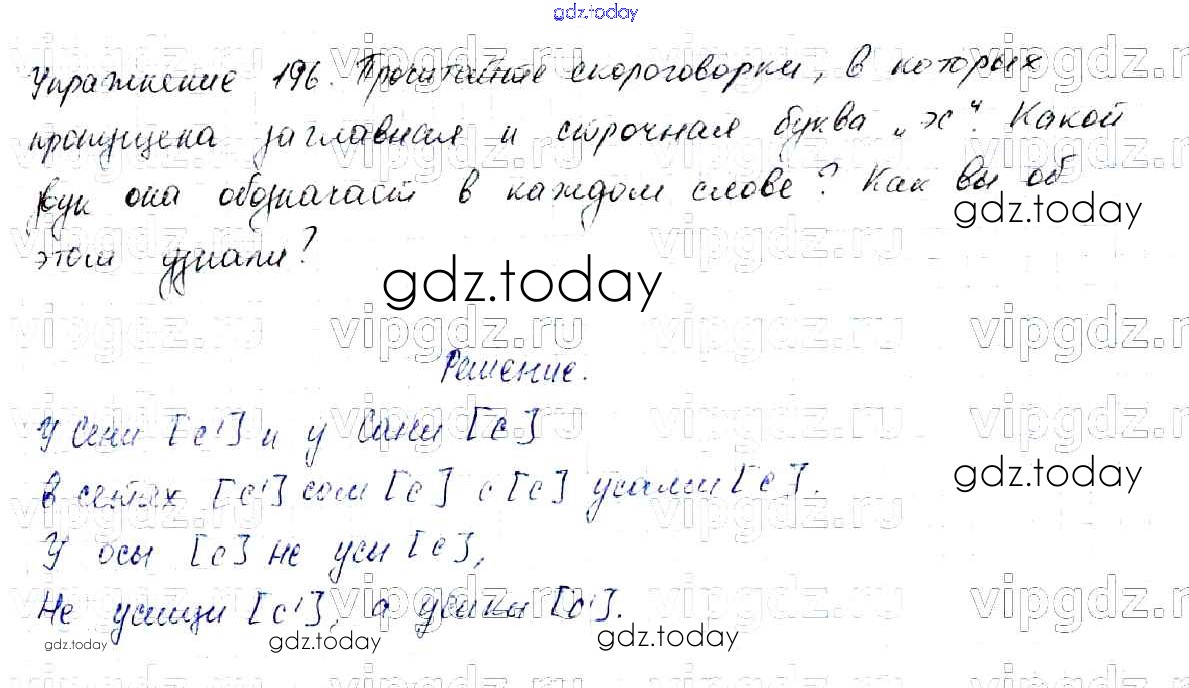 gdz.today
Упражнение 196. Прочитайте скороговорки, в которых
пропущена заглавная и строчная буква „эс“. Какой
звук она обозначает в каждом слове? Как вы об
этом узнали?
gdz.today
gdz.today
Решение.
У Сени [с'] и у Сани [с]
В сетях [с'] сом [с] с [с] усами [с].
gdz.today
У осы [с] не усы [с],
Не усищи [с'], а усики [с'].
gdz.today
gdz.today
gdz.today
vipgdz.ru